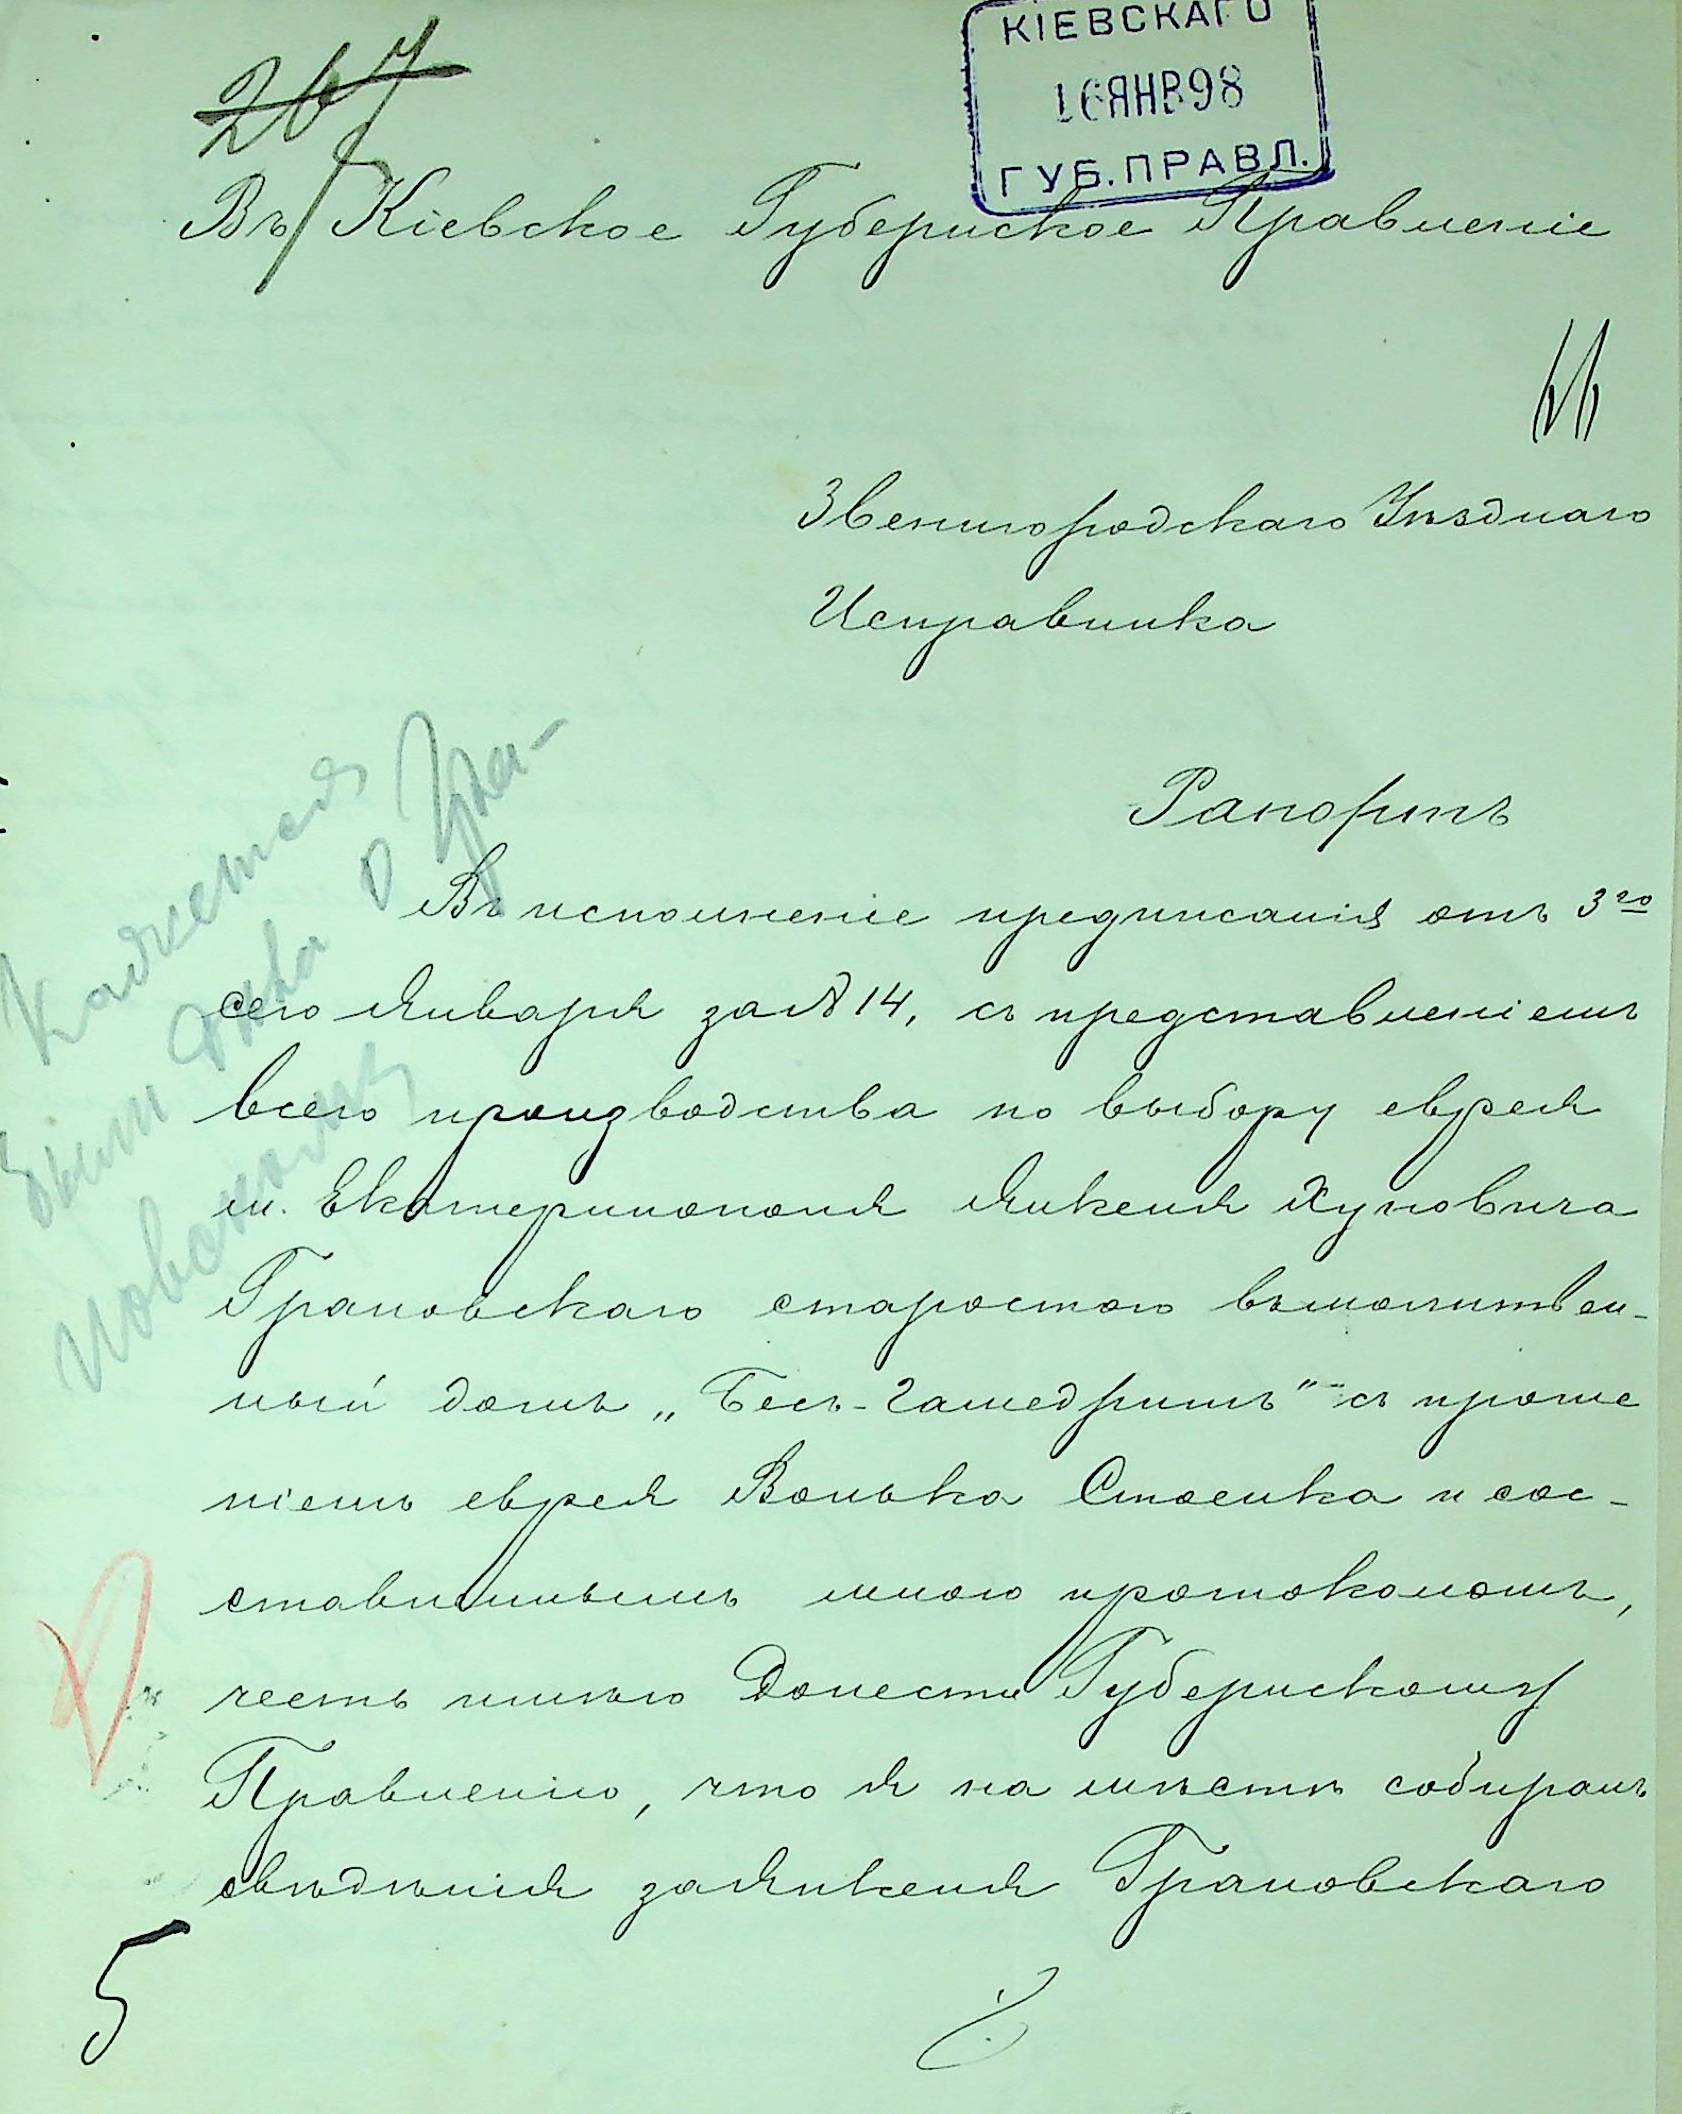 КІЕВСКАГО
16 ЯНВ 98
ГУБ. ПРАВЛ.
267
Въ Кіевское Губернское Правленіе
Звенигородскаго Уѣзднаго
Исправника
Рапортъ
Въ исполненіе предписанія отъ 3го
сего Января за № 14, съ представленіемъ
всего производства по выбору еврея
м. Екатеринополя Янкеля Хуновича
Грановскаго старостою въ молитвен-
ный домъ „Бесъ-Гамедримъ" съ проше
ніемъ еврея Волька Стоелка и сос-
ставленнымъ мною протоколомъ,
честь имѣю Донести Губернскому
Правленію, что я на мѣстѣ собиралъ
свѣдѣнія за Янкеля Грановскаго
Кажется
были дѣла о Гра-
новскомъ
5